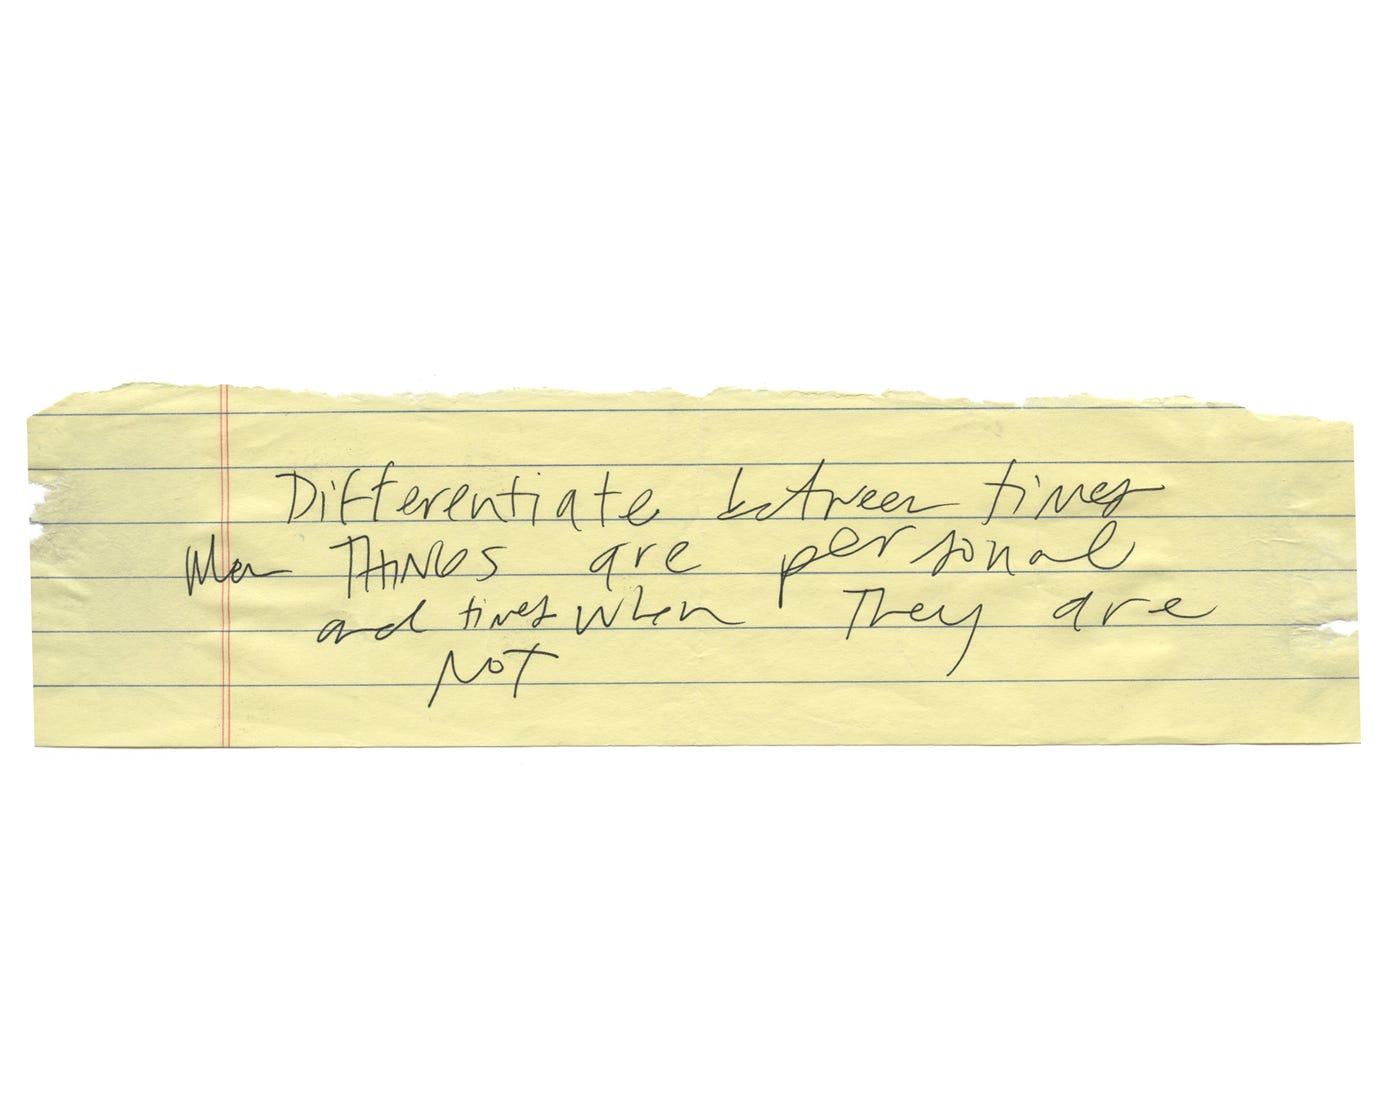 Differentiate between times
when THINGS are personal
and times when They are
NOT